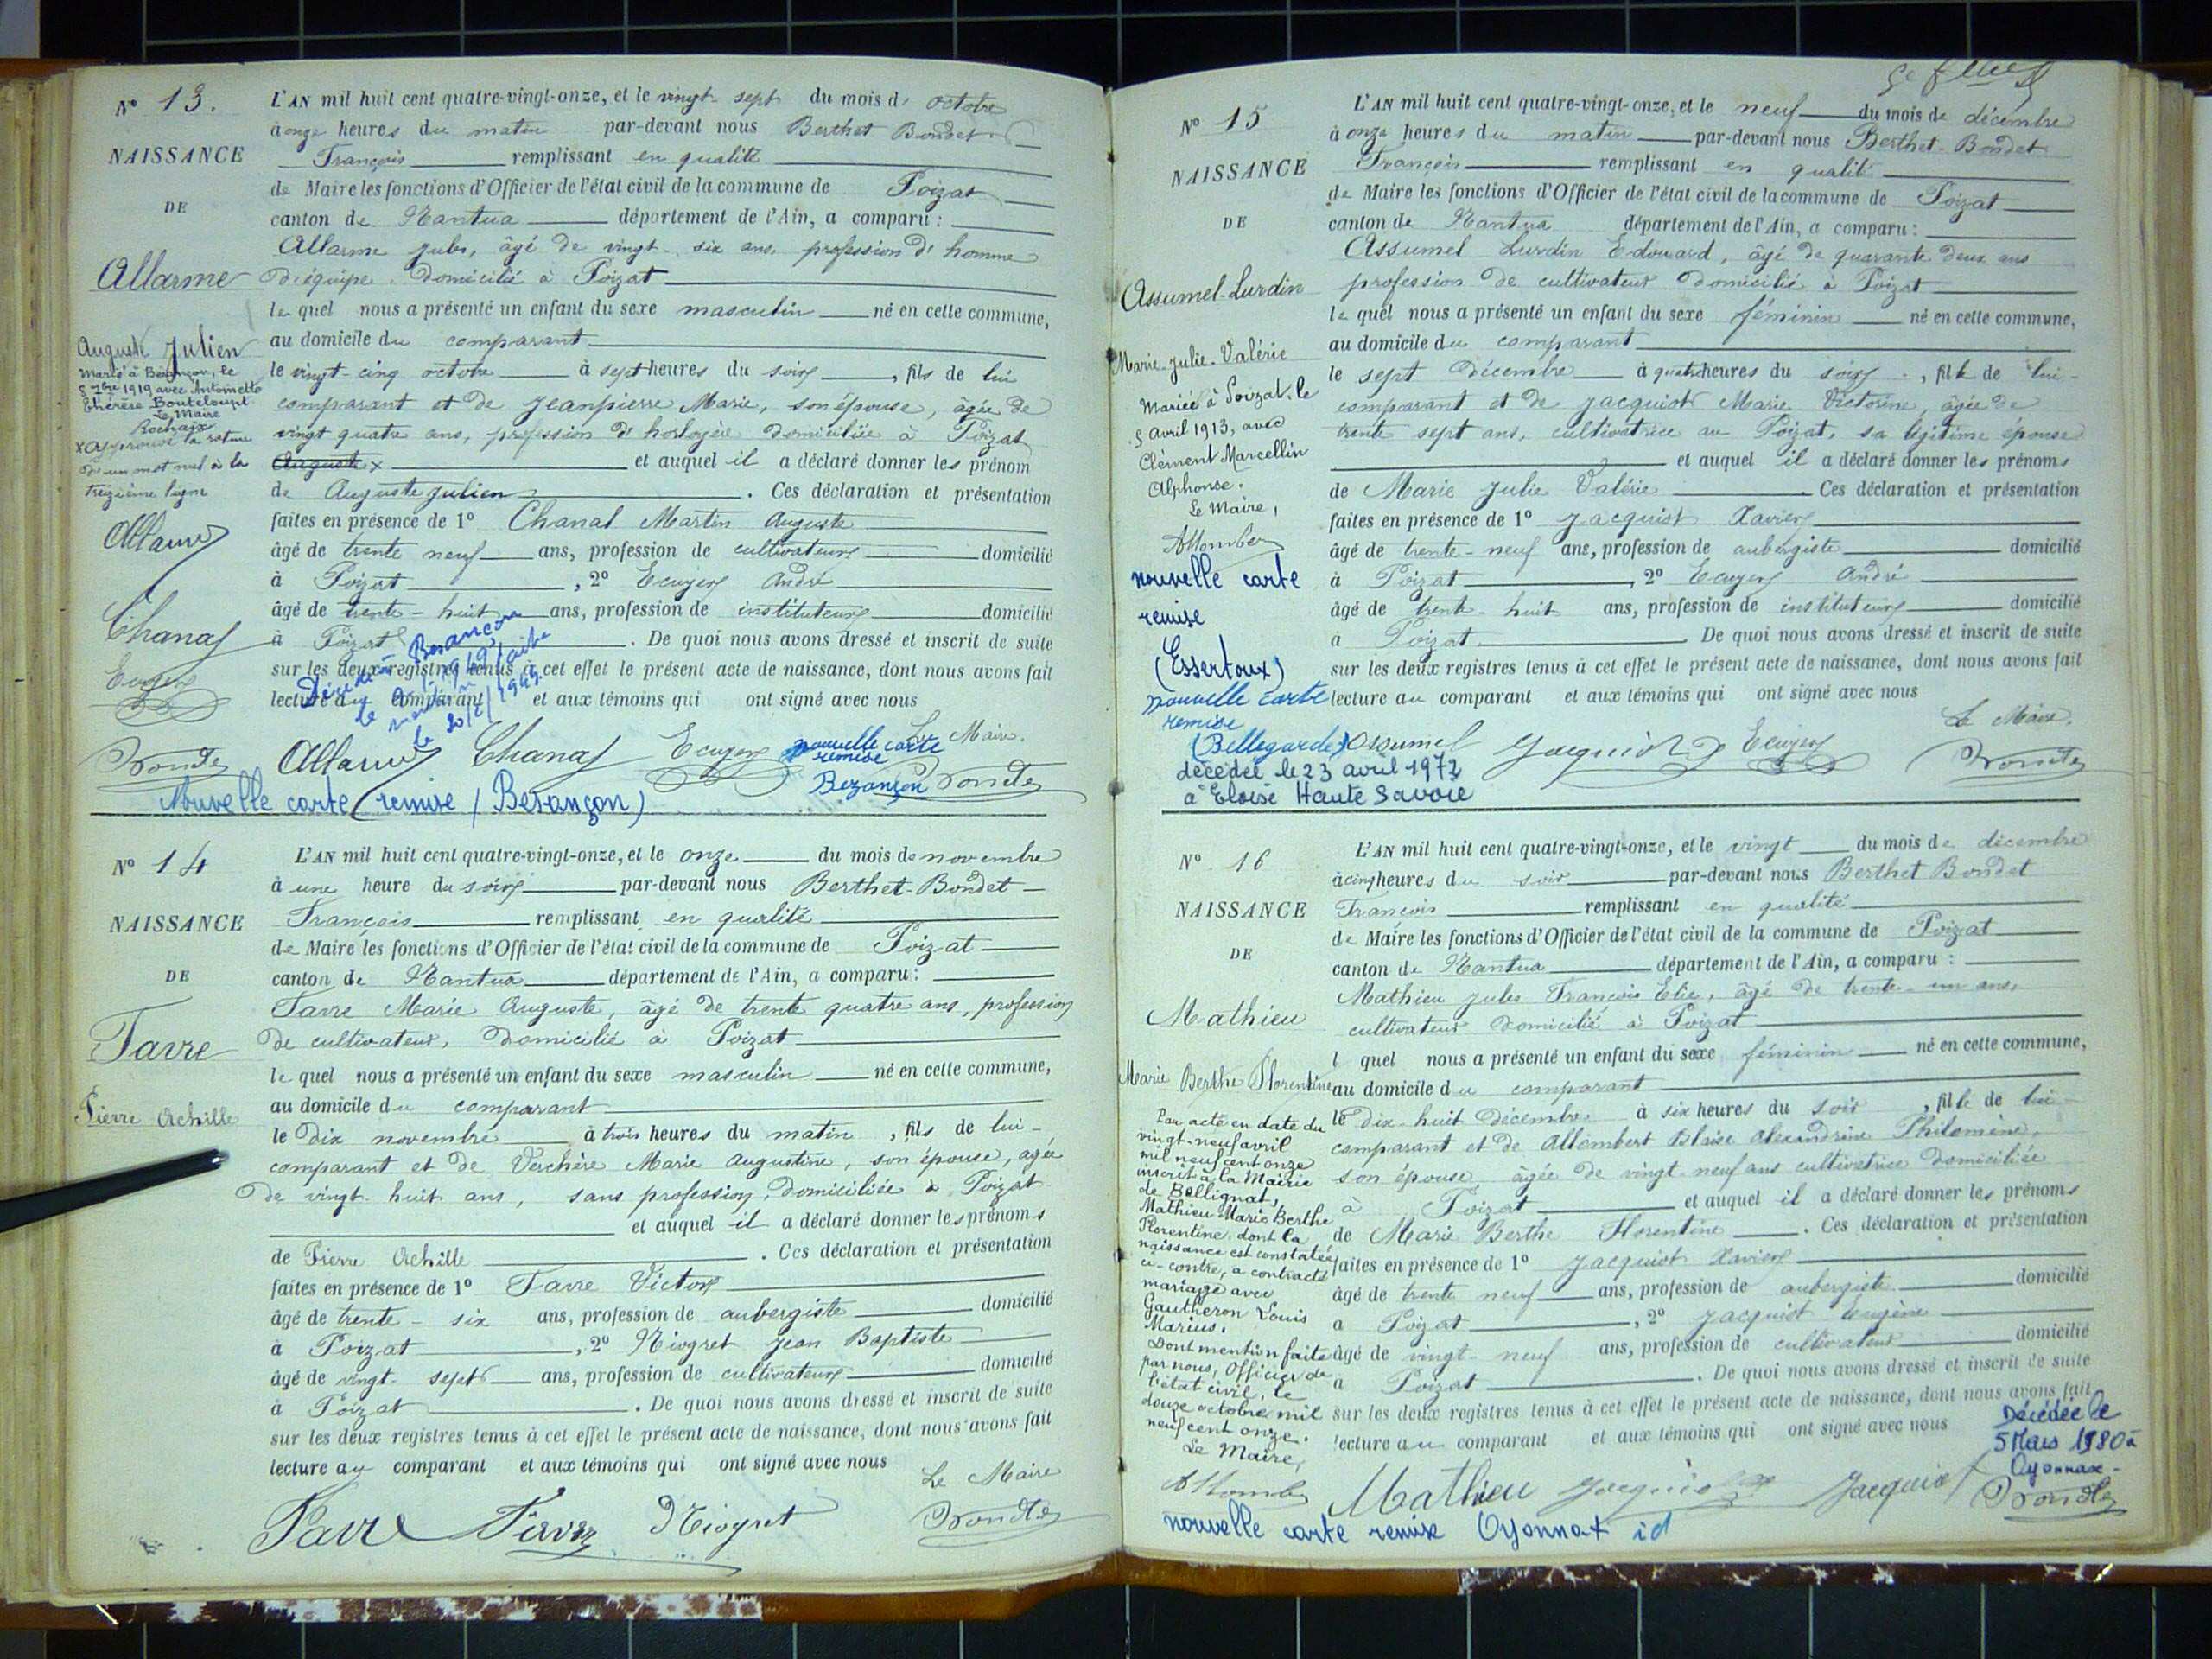 Nº 13.
NAISSANCE
DE
Allarme
Auguste Julien
Marié à Besançon, le
5 7bre 1919 avec Antoinette
Thérèse Bouteloupt.
Le Maire
Rochaix
x approuvé la rature
d'un mot nul à la
treizième ligne
Allarme
Chanal
Ecuyer
Bondet
L'AN mil huit cent quatre-vingt-onze, et le vingt-sept du mois d'octobre
à onze heures du matin par-devant nous Berthet Bondet
François remplissant en qualité
de Maire les fonctions d'Officier de l'état civil de la commune de Poizat
canton de Nantua département de l'Ain, a comparu :
Allarme Jules, âgé de vingt-six ans, profession d'homme
d'équipe, domicilié à Poizat
le quel nous a présenté un enfant du sexe masculin né en cette commune,
au domicile du comparant
le vingt-cinq octobre à sept heures du soir, fils de lui
comparant et de Jeanpierre Marie, son épouse, âgée de
vingt quatre ans, profession d'horlogère domiciliée à Poizat
Auguste x et auquel il a déclaré donner les prénom
de Auguste Julien. Ces déclaration et présentation
faites en présence de 1º Chanal Martin Auguste
âgé de trente neuf ans, profession de cultivateur domicilié
à Poizat, 2º Ecuyer André
âgé de trente-huit ans, profession de instituteur domicilié
à Poizat. De quoi nous avons dressé et inscrit de suite
sur les deux registres tenus à cet effet le présent acte de naissance, dont nous avons fait
lecture au comparant et aux témoins qui ont signé avec nous
Décédé à Besançon
le
mention faite
le 20/2/1969
Le Maire.
Allarme Chanal Ecuyer Bondet
nouvelle carte
remise
Bezançon
Nouvelle carte remise (Besançon)
Nº 14
NAISSANCE
DE
Favre
Pierre Achille
L'AN mil huit cent quatre-vingt-onze, et le onze du mois de novembre
à une heure du soir par-devant nous Berthet-Bondet
François remplissant en qualité
de Maire les fonctions d'Officier de l'état civil de la commune de Poizat
canton de Nantua département de l'Ain, a comparu :
Favre Marie Auguste, âgé de trente quatre ans, profession
de cultivateur, domicilié à Poizat
le quel nous a présenté un enfant du sexe masculin né en cette commune,
au domicile du comparant
le dix novembre à trois heures du matin, fils de lui-
comparant et de Verchère Marie Augustine, son épouse, agée
de vingt-huit ans, sans profession, domiciliée à Poizat
et auquel il a déclaré donner les prénoms
de Pierre Achille. Ces déclaration et présentation
faites en présence de 1º Favre Victor
âgé de trente-six ans, profession de aubergiste domicilié
à Poizat, 2º Niogret Jean Baptiste
âgé de vingt-sept ans, profession de cultivateur domicilié
à Poizat. De quoi nous avons dressé et inscrit de suite
sur les deux registres tenus à cet effet le présent acte de naissance, dont nous avons fait
lecture au comparant et aux témoins qui ont signé avec nous
Le Maire
Favre Favre Niogret Bondet
Nº 15
NAISSANCE
DE
Assumel-Lurdin
Marie-Julie-Valérie
Mariée à Poizat, le
5 Avril 1913, avec
Clément Marcellin
Alphonse.
Le Maire,
Allombert
nouvelle carte
remise
(Essertoux)
nouvelle carte
remise
(Bellegarde)
décédée le 23 avril 1972
à Eloise Haute Savoie
L'AN mil huit cent quatre-vingt-onze, et le neuf du mois de décembre
à onze heures du matin par-devant nous Berthet-Bondet
François remplissant en qualité
de Maire les fonctions d'Officier de l'état civil de la commune de Poizat
canton de Nantua département de l'Ain, a comparu :
Assumel Lurdin Edouard, âgé de quarante deux ans
profession de cultivateur domicilié à Poizat
le quel nous a présenté un enfant du sexe féminin né en cette commune,
au domicile du comparant
le sept décembre à quatre heures du soir, fille de lui-
comparant et de Jacquiot Marie Victorine, âgée de
trente sept ans, cultivatrice au Poizat, sa légitime épouse
et auquel il a déclaré donner les prénoms
de Marie Julie Valérie Ces déclaration et présentation
faites en présence de 1º Jacquiot Xavier
âgé de trente-neuf ans, profession de aubergiste domicilié
à Poizat, 2º Ecuyer André
âgé de trente-huit ans, profession de instituteur domicilié
à Poizat. De quoi nous avons dressé et inscrit de suite
sur les deux registres tenus à cet effet le présent acte de naissance, dont nous avons fait
lecture au comparant et aux témoins qui ont signé avec nous
Le Maire.
Assumel Jacquiot Ecuyer Bondet
Nº 16
NAISSANCE
DE
Mathieu
Marie Berthe Florentine
Par acte en date du
vingt-neuf avril
mil neuf cent onze
inscrit à la Mairie
de Bellignat,
Mathieu Marie Berthe
Florentine, dont la
naissance est constatée
ci-contre, a contracté
mariage avec
Gautheron Louis
Marius.
Dont mention faite
par nous, Officier de
l'état civil, le
douze octobre mil
neuf cent onze.
Le Maire,
Allombert
L'AN mil huit cent quatre-vingt-onze, et le vingt du mois de décembre
à cinq heures du soir par-devant nous Berthet Bondet
François remplissant en qualité
de Maire les fonctions d'Officier de l'état civil de la commune de Poizat
canton de Nantua département de l'Ain, a comparu :
Mathieu Jules François Elie, âgé de trente-un ans,
cultivateur domicilié à Poizat
l quel nous a présenté un enfant du sexe féminin né en cette commune,
au domicile du comparant
le dix-huit décembre à six heures du soir, fille de lui-
comparant et de Allombert Blaise Alexandrine Philomène,
son épouse âgée de vingt-neuf ans cultivatrice domiciliée
à Poizat et auquel il a déclaré donner les prénoms
de Marie Berthe Florentine. Ces déclaration et présentation
faites en présence de 1º Jacquiot Xavier
âgé de trente neuf ans, profession de aubergiste domicilié
à Poizat, 2º Jacquiot Eugène
âgé de vingt-neuf ans, profession de cultivateur domicilié
à Poizat. De quoi nous avons dressé et inscrit de suite
sur les deux registres tenus à cet effet le présent acte de naissance, dont nous avons fait
lecture au comparant et aux témoins qui ont signé avec nous
Décédée le
5 Mars 1980 à
Oyonnax-
Mathieu Jacquiot Jacquiot Bondet
nouvelle carte remise Oyonnax id